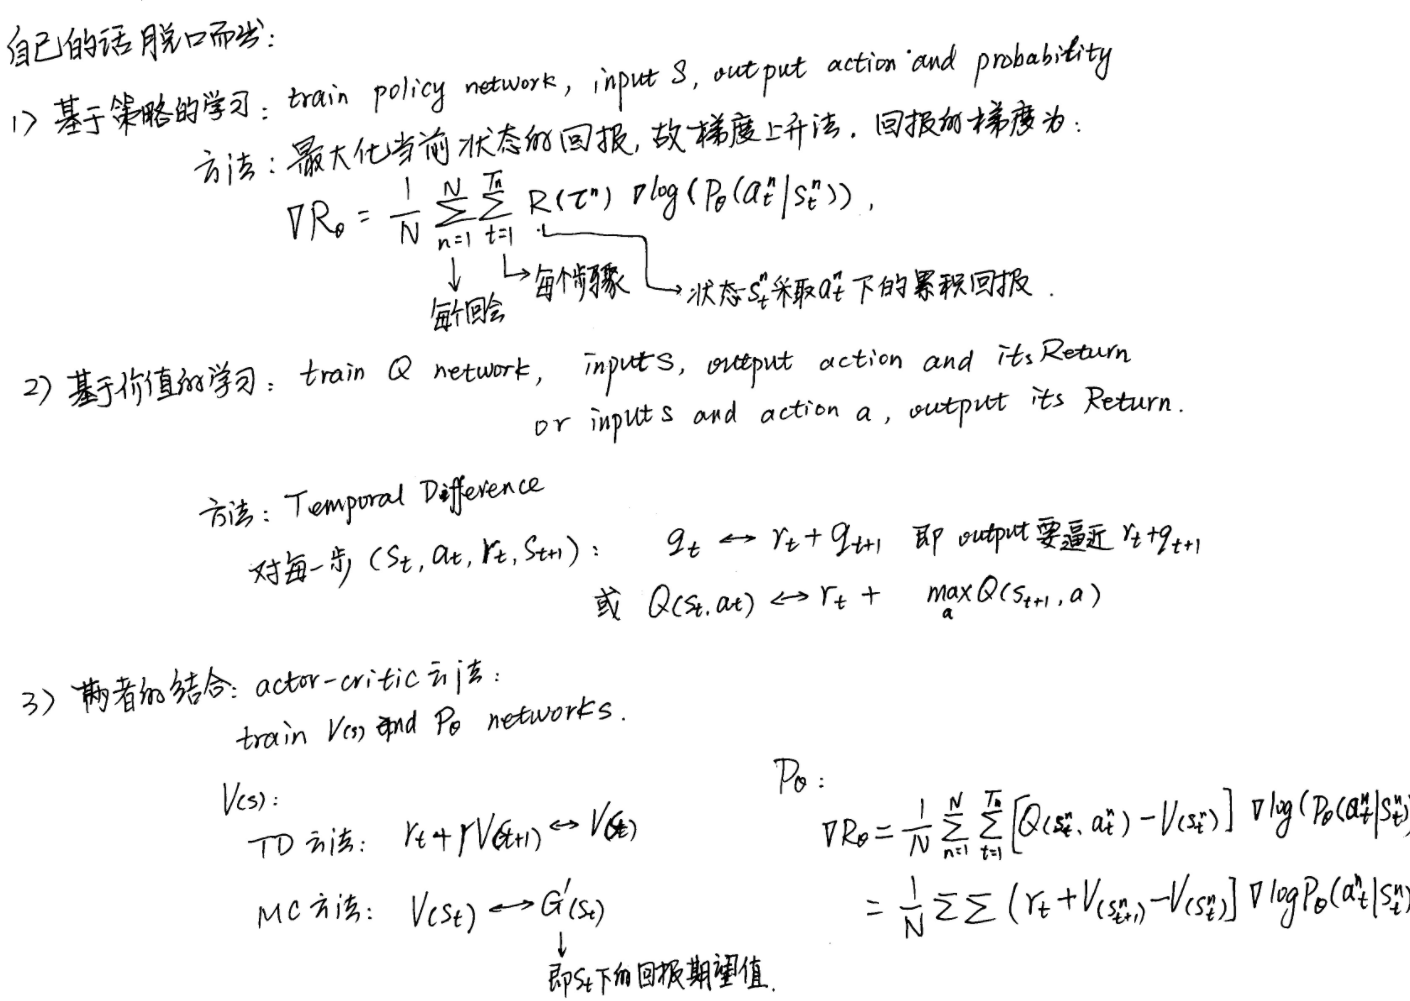 自己的话脱口而出：
1) 基于策略的学习：train policy network, input S, output action and probability
方法：最大化当前状态的回报，故梯度上升法．回报的梯度为：
∇R_θ = 1/N Σ_{n=1}^{N} Σ_{t=1}^{T_n} R(τ^n) ∇log(P_θ(a_t^n|s_t^n)),
↓ 每个回合 → 每个步骤 → 状态s_t^n采取a_t^n下的累积回报．
2) 基于价值的学习：train Q network, input S, output action and its Return
or input s and action a, output its Return.
方法：Temporal Difference
对每一步 (s_t, a_t, r_t, s_{t+1})： q_t ↔ r_t + q_{t+1} 即 output要逼近 r_t+q_{t+1}
或 Q(s_t, a_t) ↔ r_t + max_a Q(s_{t+1}, a)
3) 两者的结合：actor-critic 方法：
train V(s) and P_θ networks.
V(s):
TD 方法： r_t + γV(s_{t+1}) ↔ V(s_t)
MC 方法： V(s_t) ↔ G'(s_t)
↓
即s_t下的回报期望值．
P_θ:
∇R_θ = 1/N Σ_{n=1}^{N} Σ_{t=1}^{T_n} [Q(s_t^n, a_t^n) - V(s_t^n)] ∇log(P_θ(a_t^n|s_t^n)
= 1/N Σ Σ (r_t + V(s_{t+1}^n) - V(s_t^n)] ∇logP_θ(a_t^n|s_t^n)